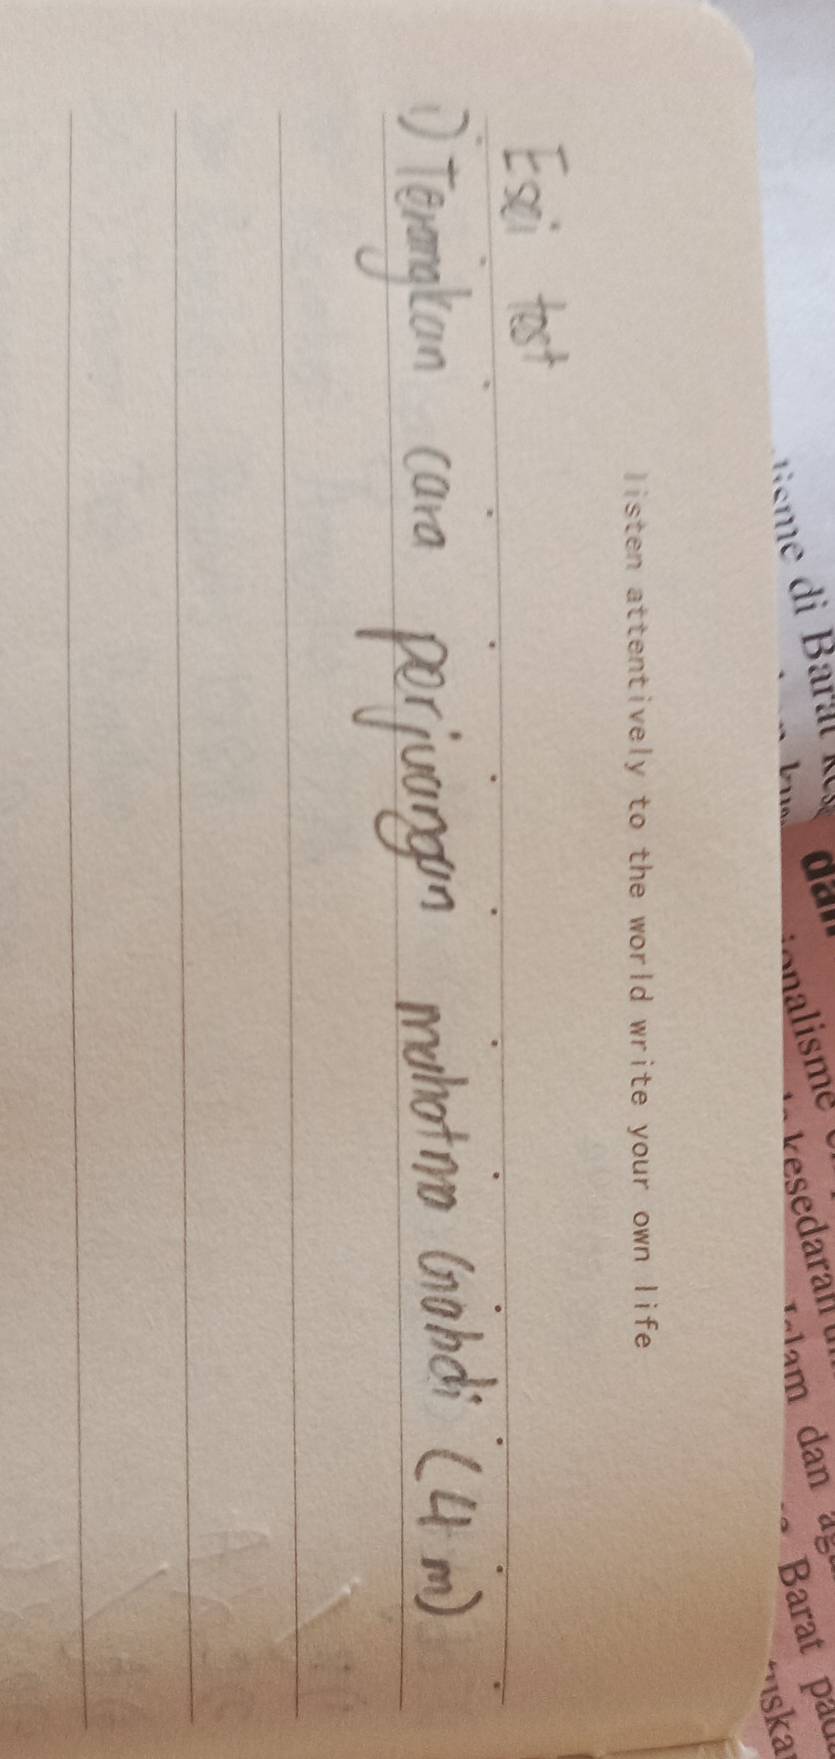 listen attentively to the world write your own life
Esei test
1) Terangkan cara perjuangan mahatma Gahdi (4 m)
lisme di Barat
dan
ionalisme
kesedaran
Islam dan
Barat